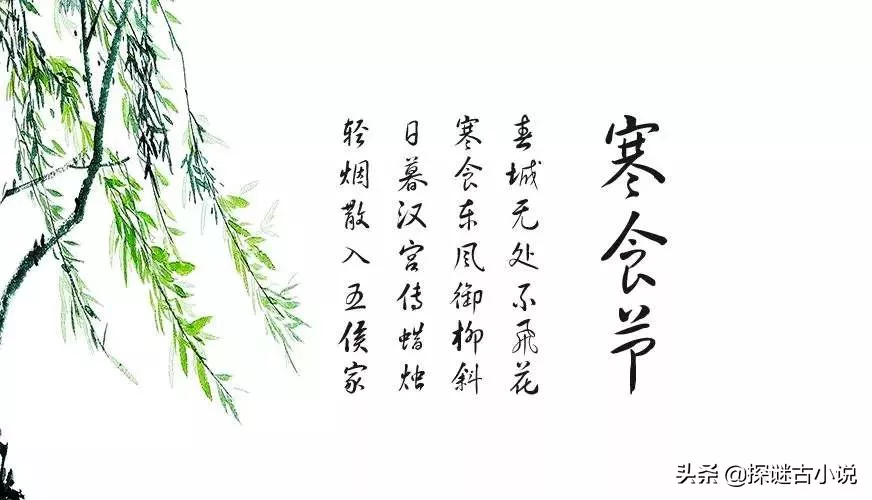 寒食节
春城无处不飛花
寒食东风御柳斜
日暮汉宫传蜡烛
轻烟散入五侯家
头条 @探谜古小说